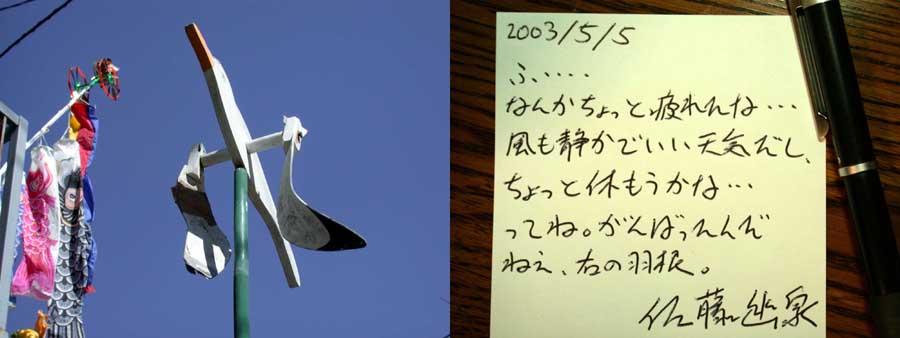 2003/5/5
ふ・・・・
なんかちょっと、疲れたな・・・
風も静かでいい天気だし、
ちょっと休もうかな・・・
ってね。がんばったんだ
ねぇ、右の羽根。
佐藤幽泉